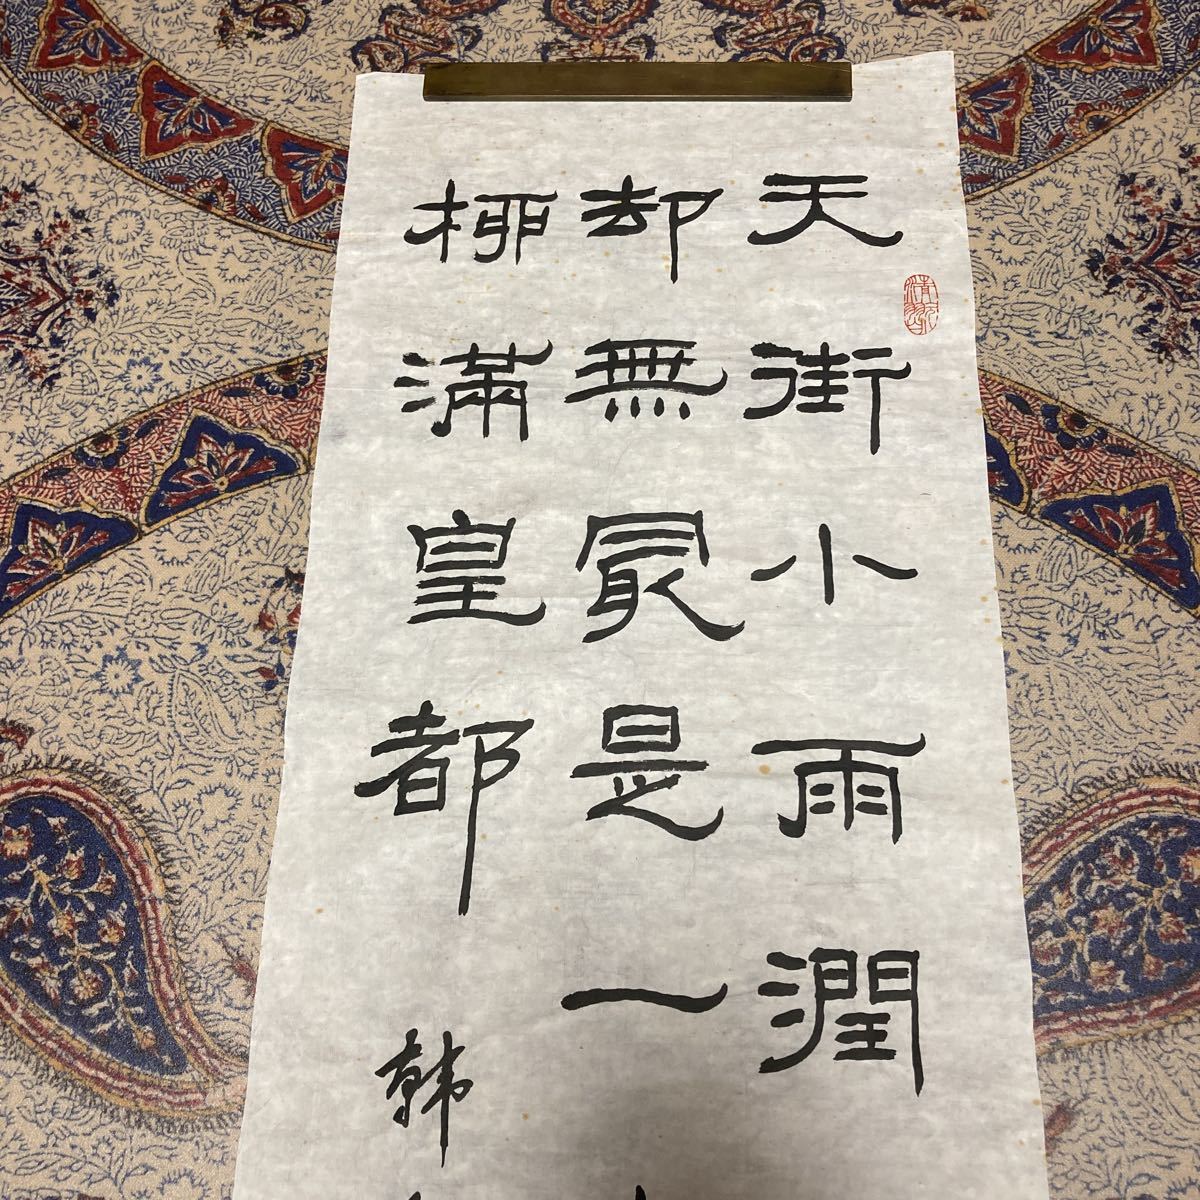 天街小雨潤
却無冣是一
柳滿皇都
韩